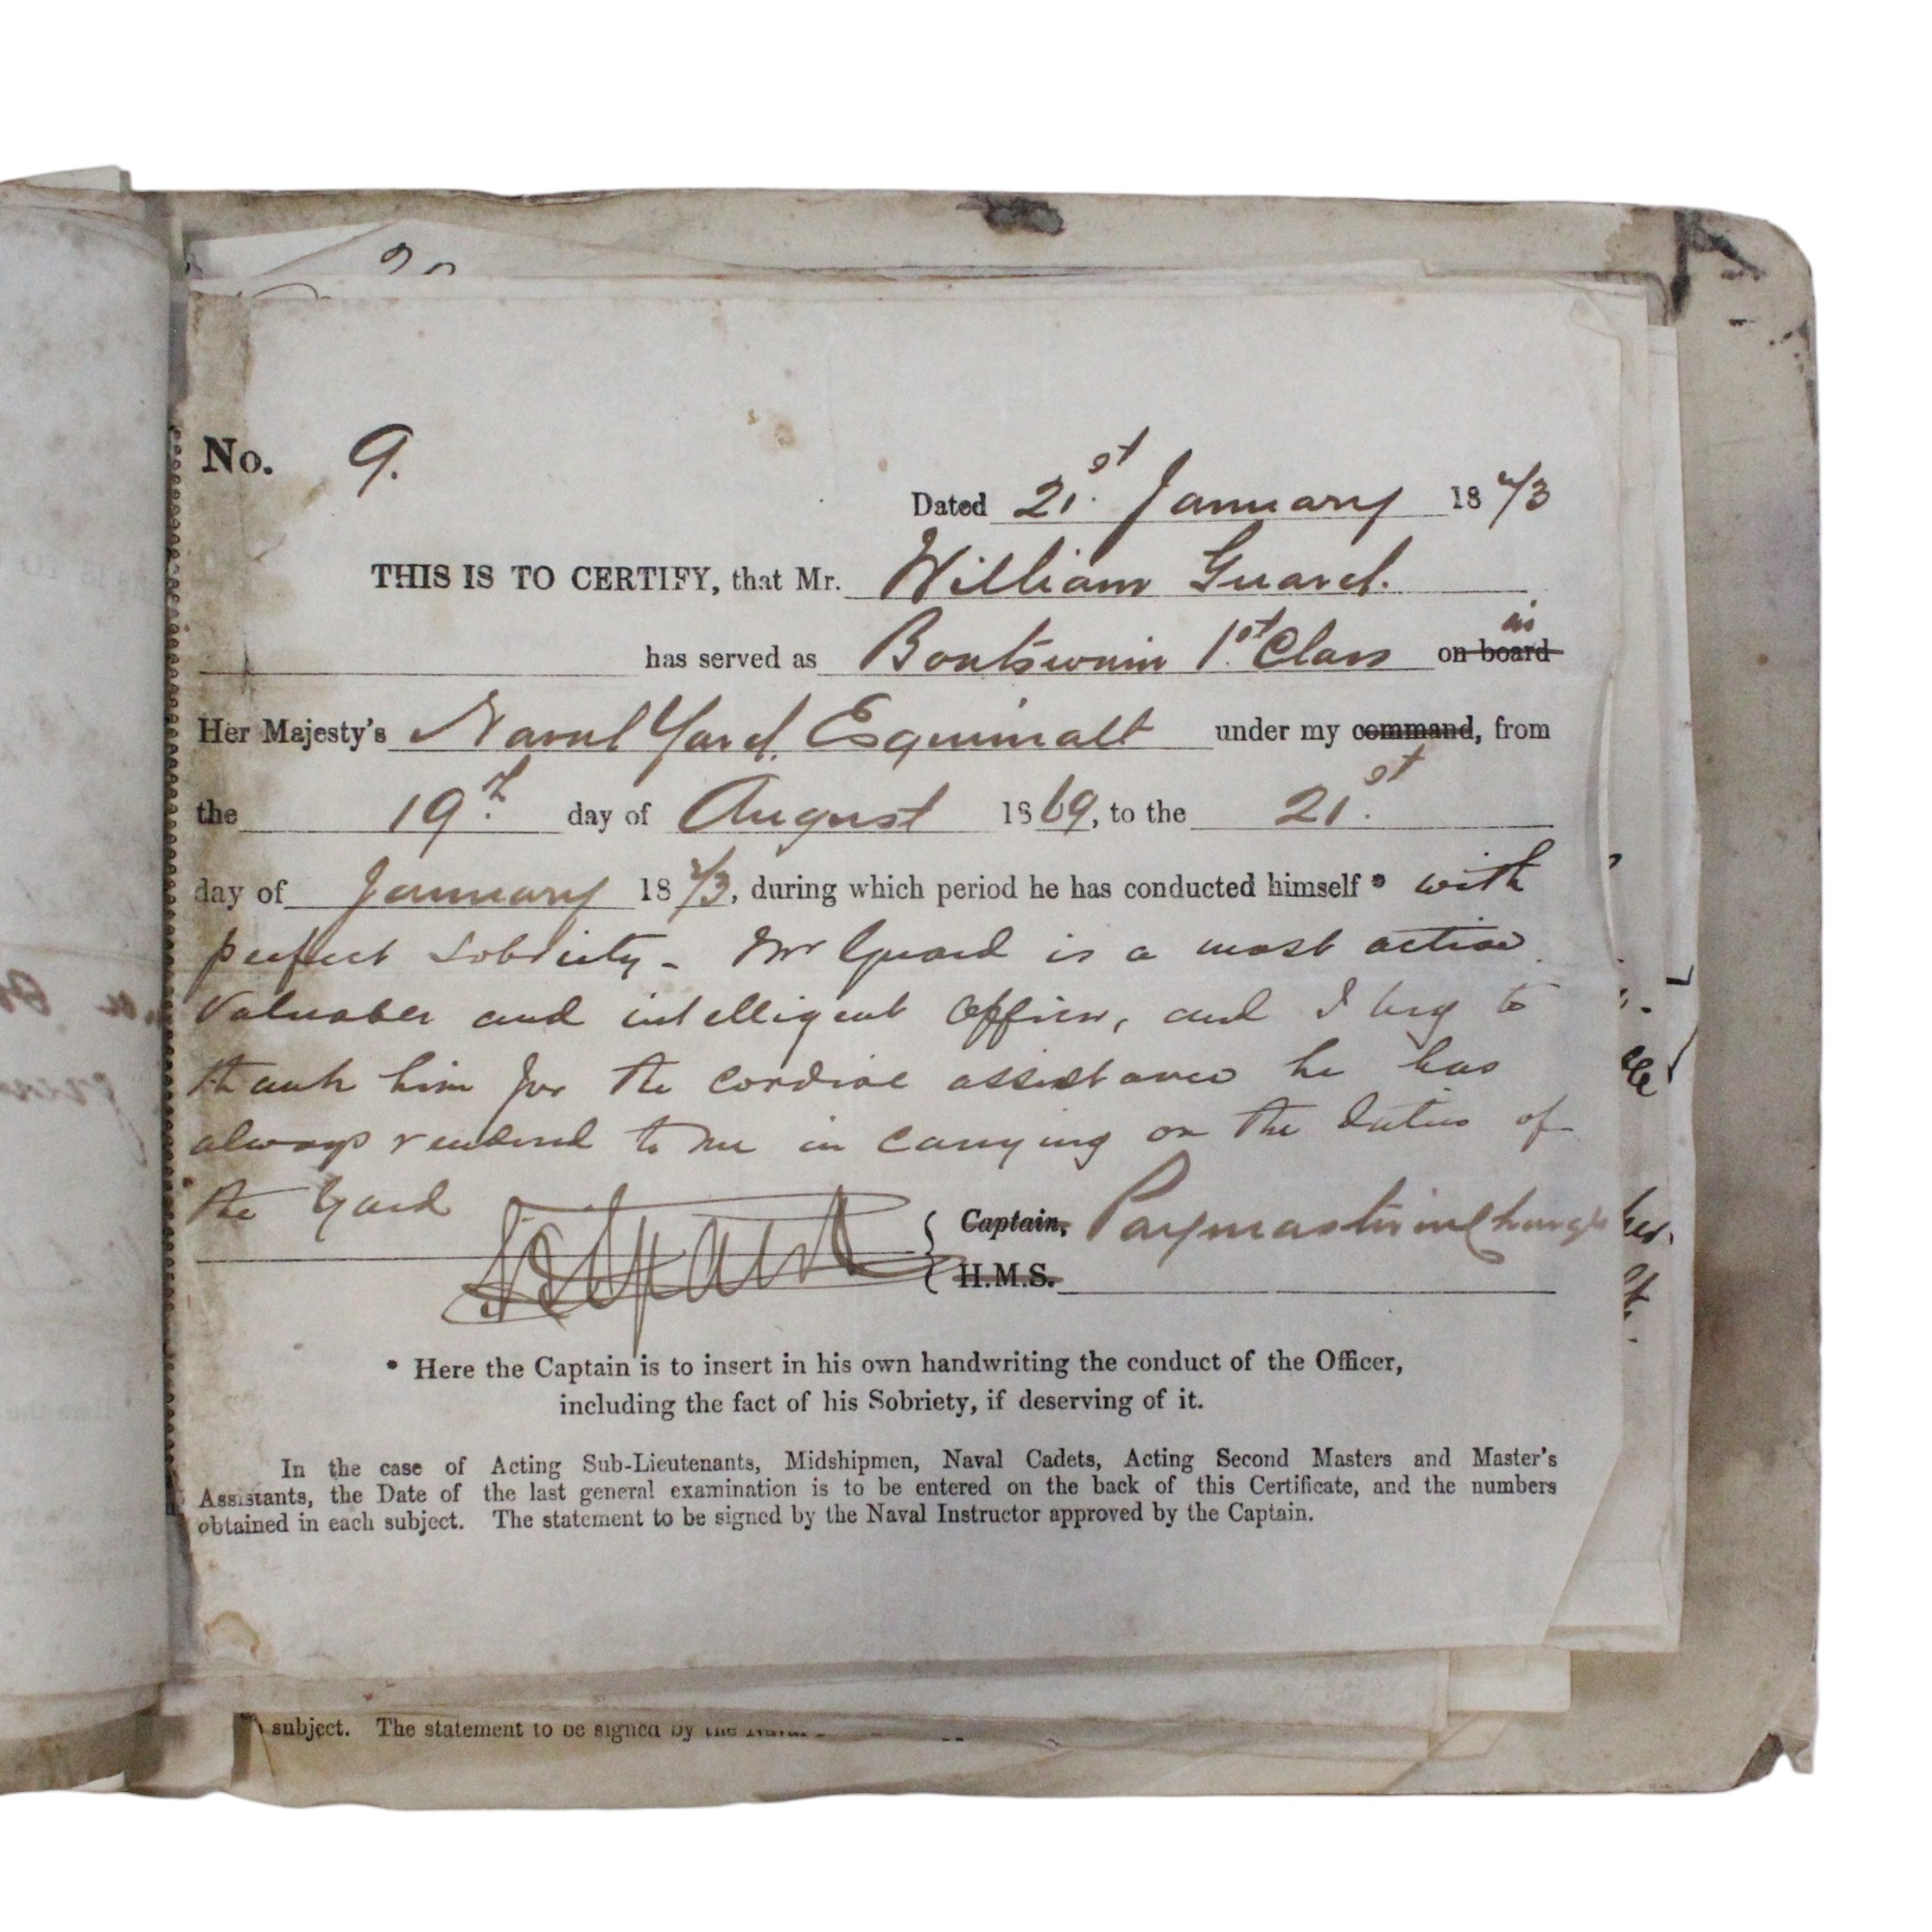 No. 9.
Dated 21st January 1873
THIS IS TO CERTIFY, that Mr. William Guard.
has served as Boatswain 1st Class on board in
Her Majesty's Naval Yard Esquimalt under my command, from
the 19th day of August 1869, to the 21st
day of January 1873, during which period he has conducted himself * with
perfect Sobriety - Mr Guard is a most active
Valuable and intelligent Officer, and I beg to
thank him for the cordial assistance he has
always rendered to me in carrying on the duties of
the Yard
Captain, Paymaster in Charge
H.M.S.
* Here the Captain is to insert in his own handwriting the conduct of the Officer,
including the fact of his Sobriety, if deserving of it.
In the case of Acting Sub-Lieutenants, Midshipmen, Naval Cadets, Acting Second Masters and Master's
Assistants, the Date of the last general examination is to be entered on the back of this Certificate, and the numbers
obtained in each subject. The statement to be signed by the Naval Instructor approved by the Captain.
subject. The statement to be signed by the Naval